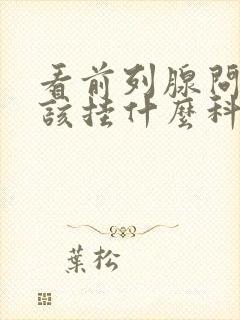 看前列腺問
該挂什麼科
葉松